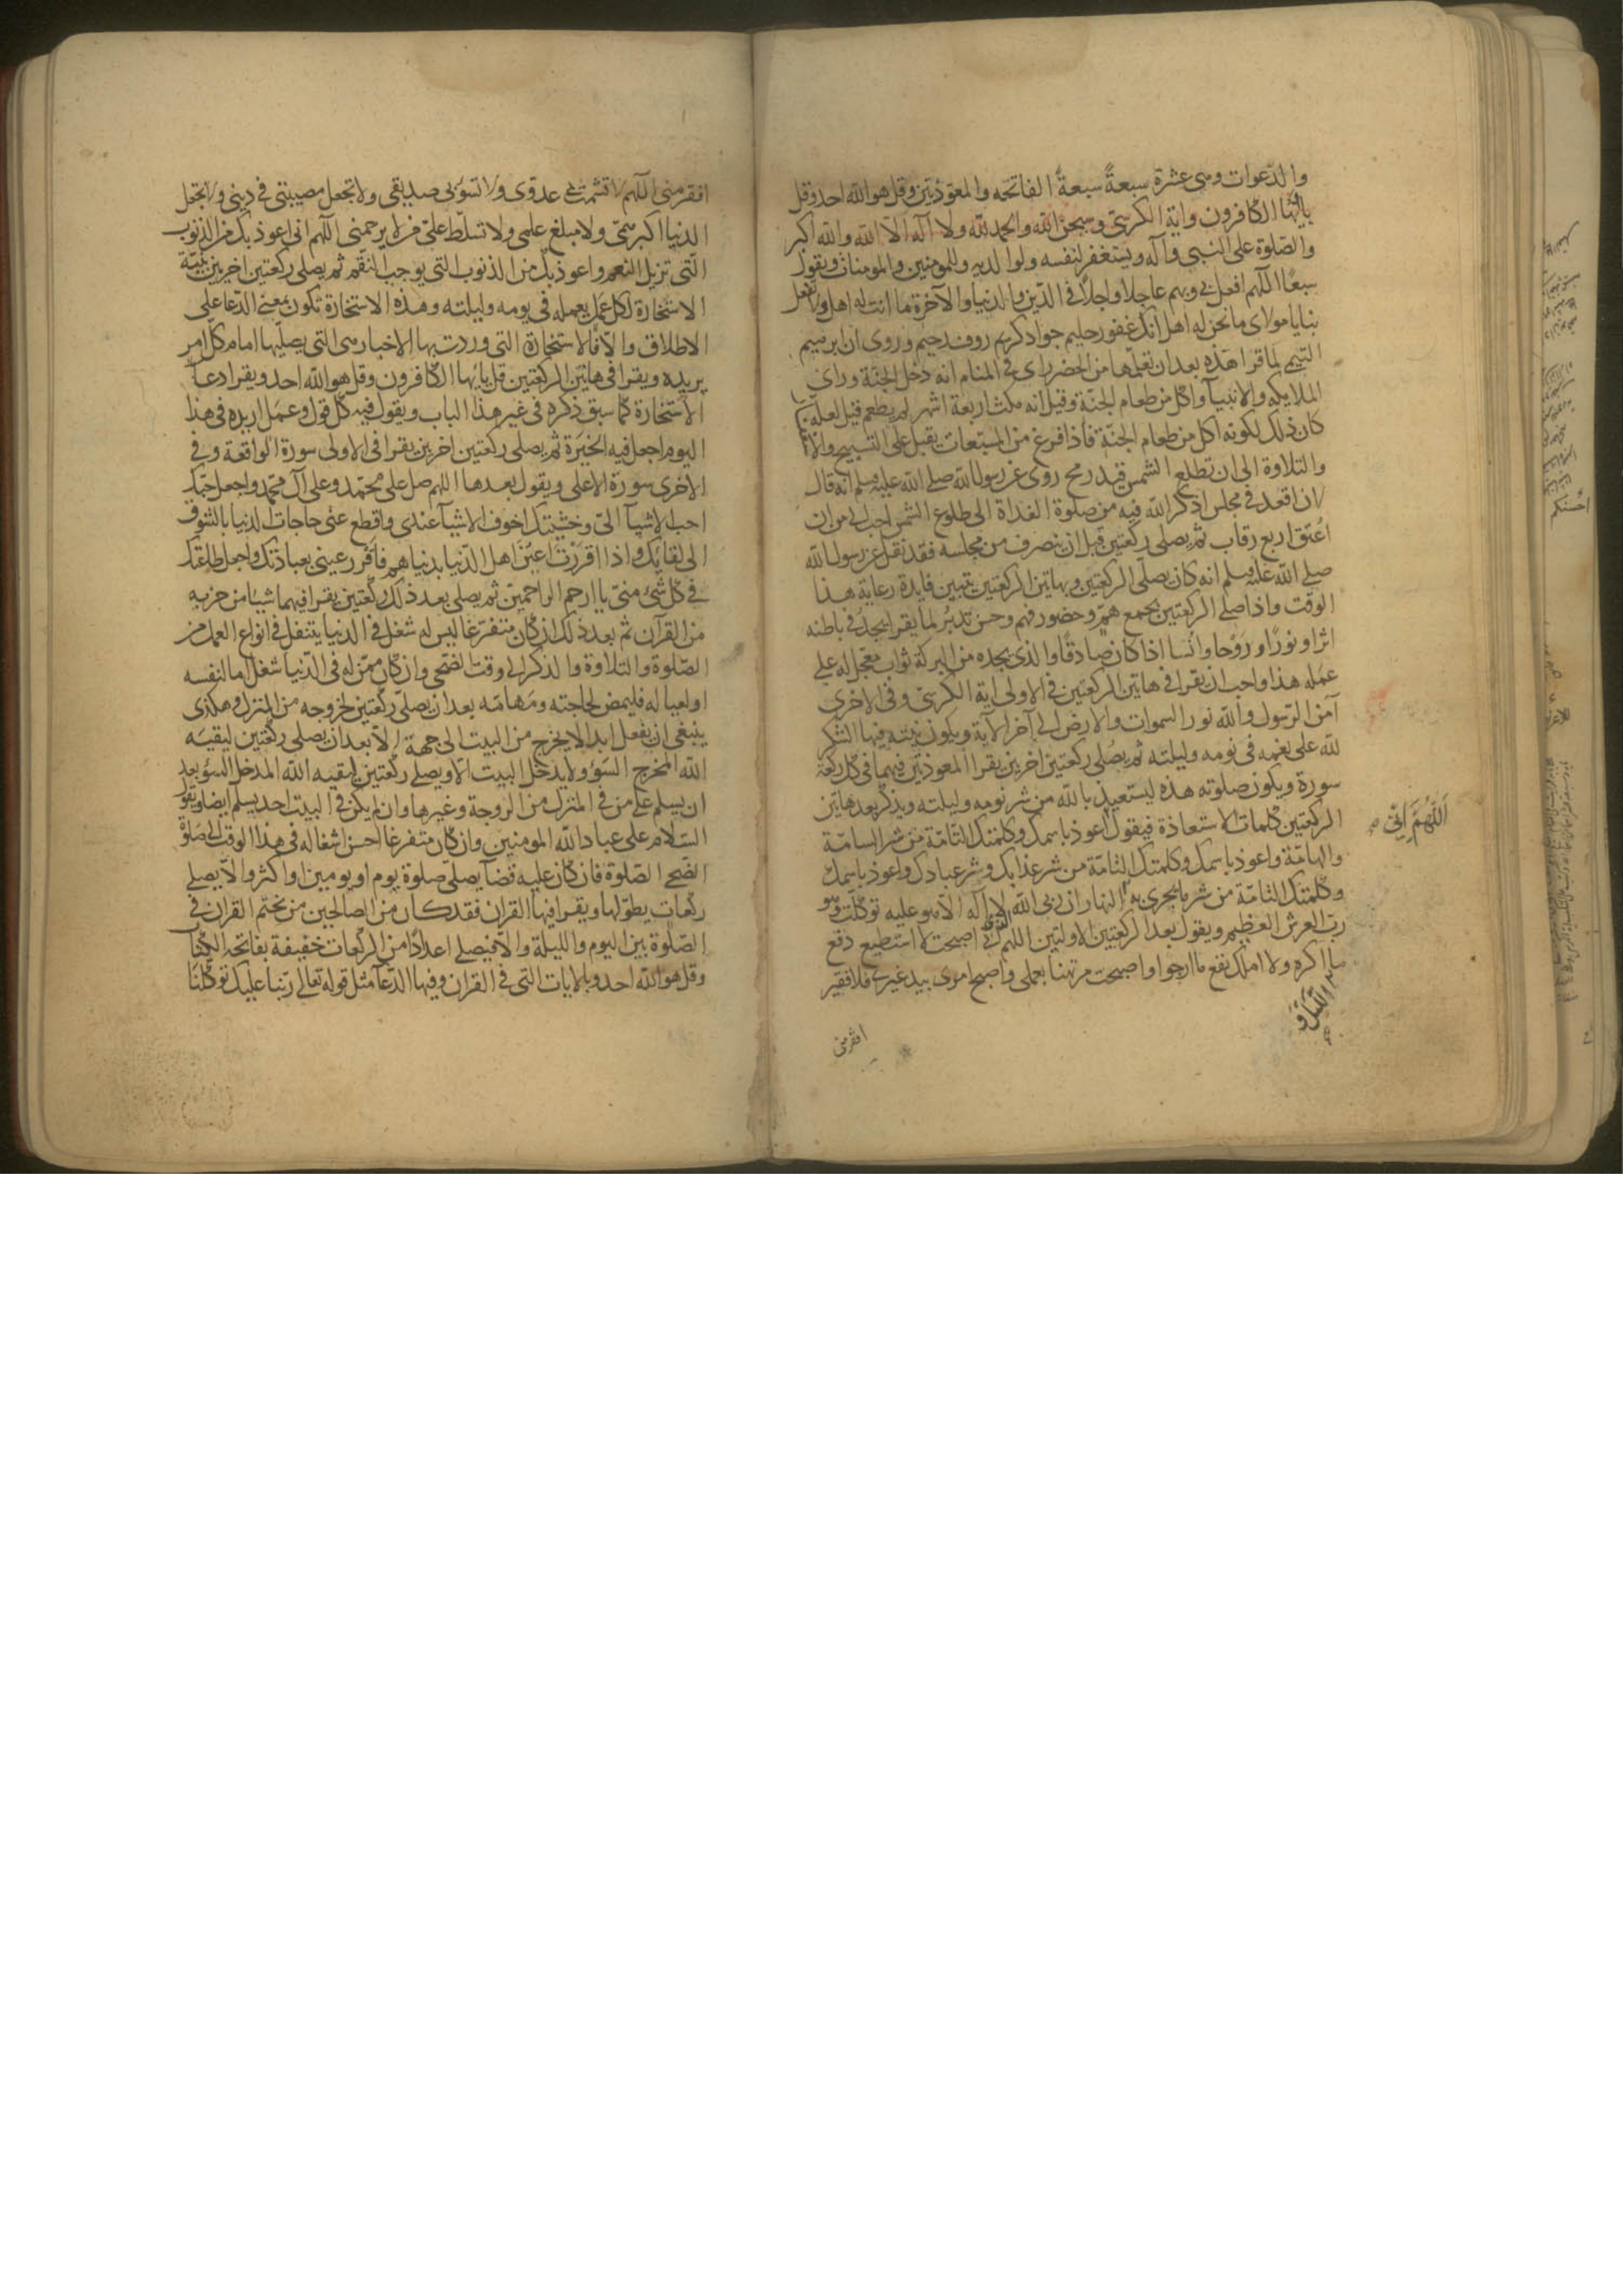 والدعوات وهى عشرة سبعة سبعة الفاتحه والمعوذتين وقل هو الله احد وقل
يايها الكافرون واية الكرسى وسبحن الله والحمد لله ولا اله الا الله والله اكبر
والصلوة على النبى وآله ويستغفر لنفسه ولوالديه وللمومنين والمومنات ويقول
سبعا اللهم افعل بى وبهم عاجلا واجلا فى الدين والدنيا والآخرة ما انت له اهل ولا تفعل
بنا يا مولاى ما نحن له اهل انك غفور حليم جواد كريم روف رحيم وروى ان ابرهيم
التيمى لما قرا هذه بعد ان تعلمها من الخضر راى فى المنام انه دخل الجنة وراى
الملايكه والانبيآ واكل من طعام الجنة وقيل انه مكث اربعة اشهر لم يطعم قيل لعله
كان ذلك لكونه اكل من طعام الجنة فاذا فرغ من المسبعات يقبل على التسبيح والاستغفار
والتلاوة الى ان تطلع الشمس قيد رمح روى عن رسول الله صلى الله عليه وسلم انه قال
لان اقعد فى مجلس اذكر الله فيه من صلوة الغداة الى طلوع الشمس احب الى من ان
اعتق اربع رقاب ثم يصلى ركعتين قبل ان ينصرف من مجلسه فقد نقل عن رسول الله
صلى الله عليه وسلم انه كان يصلى الركعتين وبهاتين الركعتين تتبين فايدة رعاية هذا
الوقت واذا صلى الركعتين بجمع هم وحضور فهم وحسن تدبر لما يقرا يجد فى باطنه
اثرا ونورا وروحا وانسا اذا كان صادقا والذى يجده من البركة ثواب معجل له على
عمله هذا واحب ان يقرا فى هاتين الركعتين فى الاولى اية الكرسى وفى الاخرى
آمن الرسول والله نور السموات والارض الى آخر الآية ويكون نيته فيها الشكر
لله على نعمه فى نومه وليلته ثم يصلى ركعتين اخرين يقرا المعوذتين فيهما فى كل ركعة
سورة ويكون صلوته هذه ليستعيذ بالله من شر نومه وليلته ويذكر بعد هاتين
الركعتين كلمات الاستعاذة فيقول اعوذ باسمك وكلمتك التامة من شر السامة
والهامة واعوذ باسمك وكلمتك التامة من شر عذابك وشر عبادك واعوذ باسمك
وكلمتك التامة من شر ما يجرى به النهار ان ربى الله لا اله الا هو عليه توكلت وهو
رب العرش العظيم ويقول بعد الركعتين الاولتين اللهم انى اصبحت لا استطيع دفع
ما اكره ولا املك نفع ما ارجوا واصبحت مرتهنا بعملى واصبح امرى بيد غيرى فلا فقير
الليل و
افقر منى
اللهم انى
افقر منى اللهم لا تشمت بى عدوى ولا تسؤ بى صديقى ولا تجعل مصيبتى فى دينى ولا تجعل
الدنيا اكبر همى ولا مبلغ علمى ولا تسلط على من لا يرحمنى اللهم انى اعوذ بك من الذنوب
التى تزيل النعم واعوذ بك من الذنوب التى يوجب النقم ثم يصلى ركعتين اخرين بنية
الاستخارة لكل عمل يعمله فى يومه وليلته وهذه الاستخارة تكون بمعنى الدعا على
الاطلاق والا فالاستخارة التى وردت بها الاخبار هى التى يصليها امام كل امر
يريده ويقرا فى هاتين الركعتين قل يايها الكافرون وقل هو الله احد ويقرا دعآ
الاستخارة كما سبق ذكره فى غير هذا الباب ويقول فيه كل قول وعمل اريده فى هذا
اليوم اجعل فيه الخيرة ثم يصلى ركعتين اخرين يقرا فى الاولى سورة الواقعة وفى
الاخرى سورة الاعلى ويقول بعدها اللهم صل على محمد وعلى آل محمد واجعل حبك
احب الاشيآ الى وخشيتك اخوف الاشيآ عندى واقطع عنى حاجات الدنيا بالشوق
الى لقايك واذا اقررت اعين اهل الدنيا بدنياهم فاقرر عينى بعبادتك واجعل طاعتك
فى كل شئ منى يا ارحم الراحمين ثم يصلى بعد ذلك ركعتين يقرا فيهما شيا من حزبه
من القرآن ثم بعد ذلك ان كان متفرغا ليس له شغل فى الدنيا يتنفل فى انواع العمل من
الصلوة والتلاوة والذكر الى وقت الضحى وان كان ممن له فى الدنيا شغل اما لنفسه
او لعياله فليمض لحاجته ومهامه بعد ان يصلى ركعتين لخروجه من المنزل وهكذى
ينبغى ان يفعل ابدا لا يخرج من البيت الى جهة الا بعد ان يصلى ركعتين ليقيه
الله المخرج السؤ ولا يدخل البيت الا ويصلى ركعتين ليقيه الله المدخل السؤ بعد
ان يسلم على من فى المنزل من الزوجة وغيرها وان لم يكن فى البيت احد يسلم ايضا ويقول
السلام على عباد الله المومنين وان كان متفرغا احسن اشغاله فى هذا الوقت الى صلوة
الضحى الصلوة فان كان عليه قضآ يصلى صلوة يوم او يومين او اكثر والا يصلى
ركعات يطولها ويقرا فيها القران فقد كان من الصالحين من يختم القران فى
الصلوة بين اليوم والليلة والا فيصلى اعدادا من الركعات خفيفة بفاتحة الكتاب
وقل هو الله احد وبالايات التى فى القران وفيها الدعآ مثل قوله تعالى ربنا عليك توكلنا